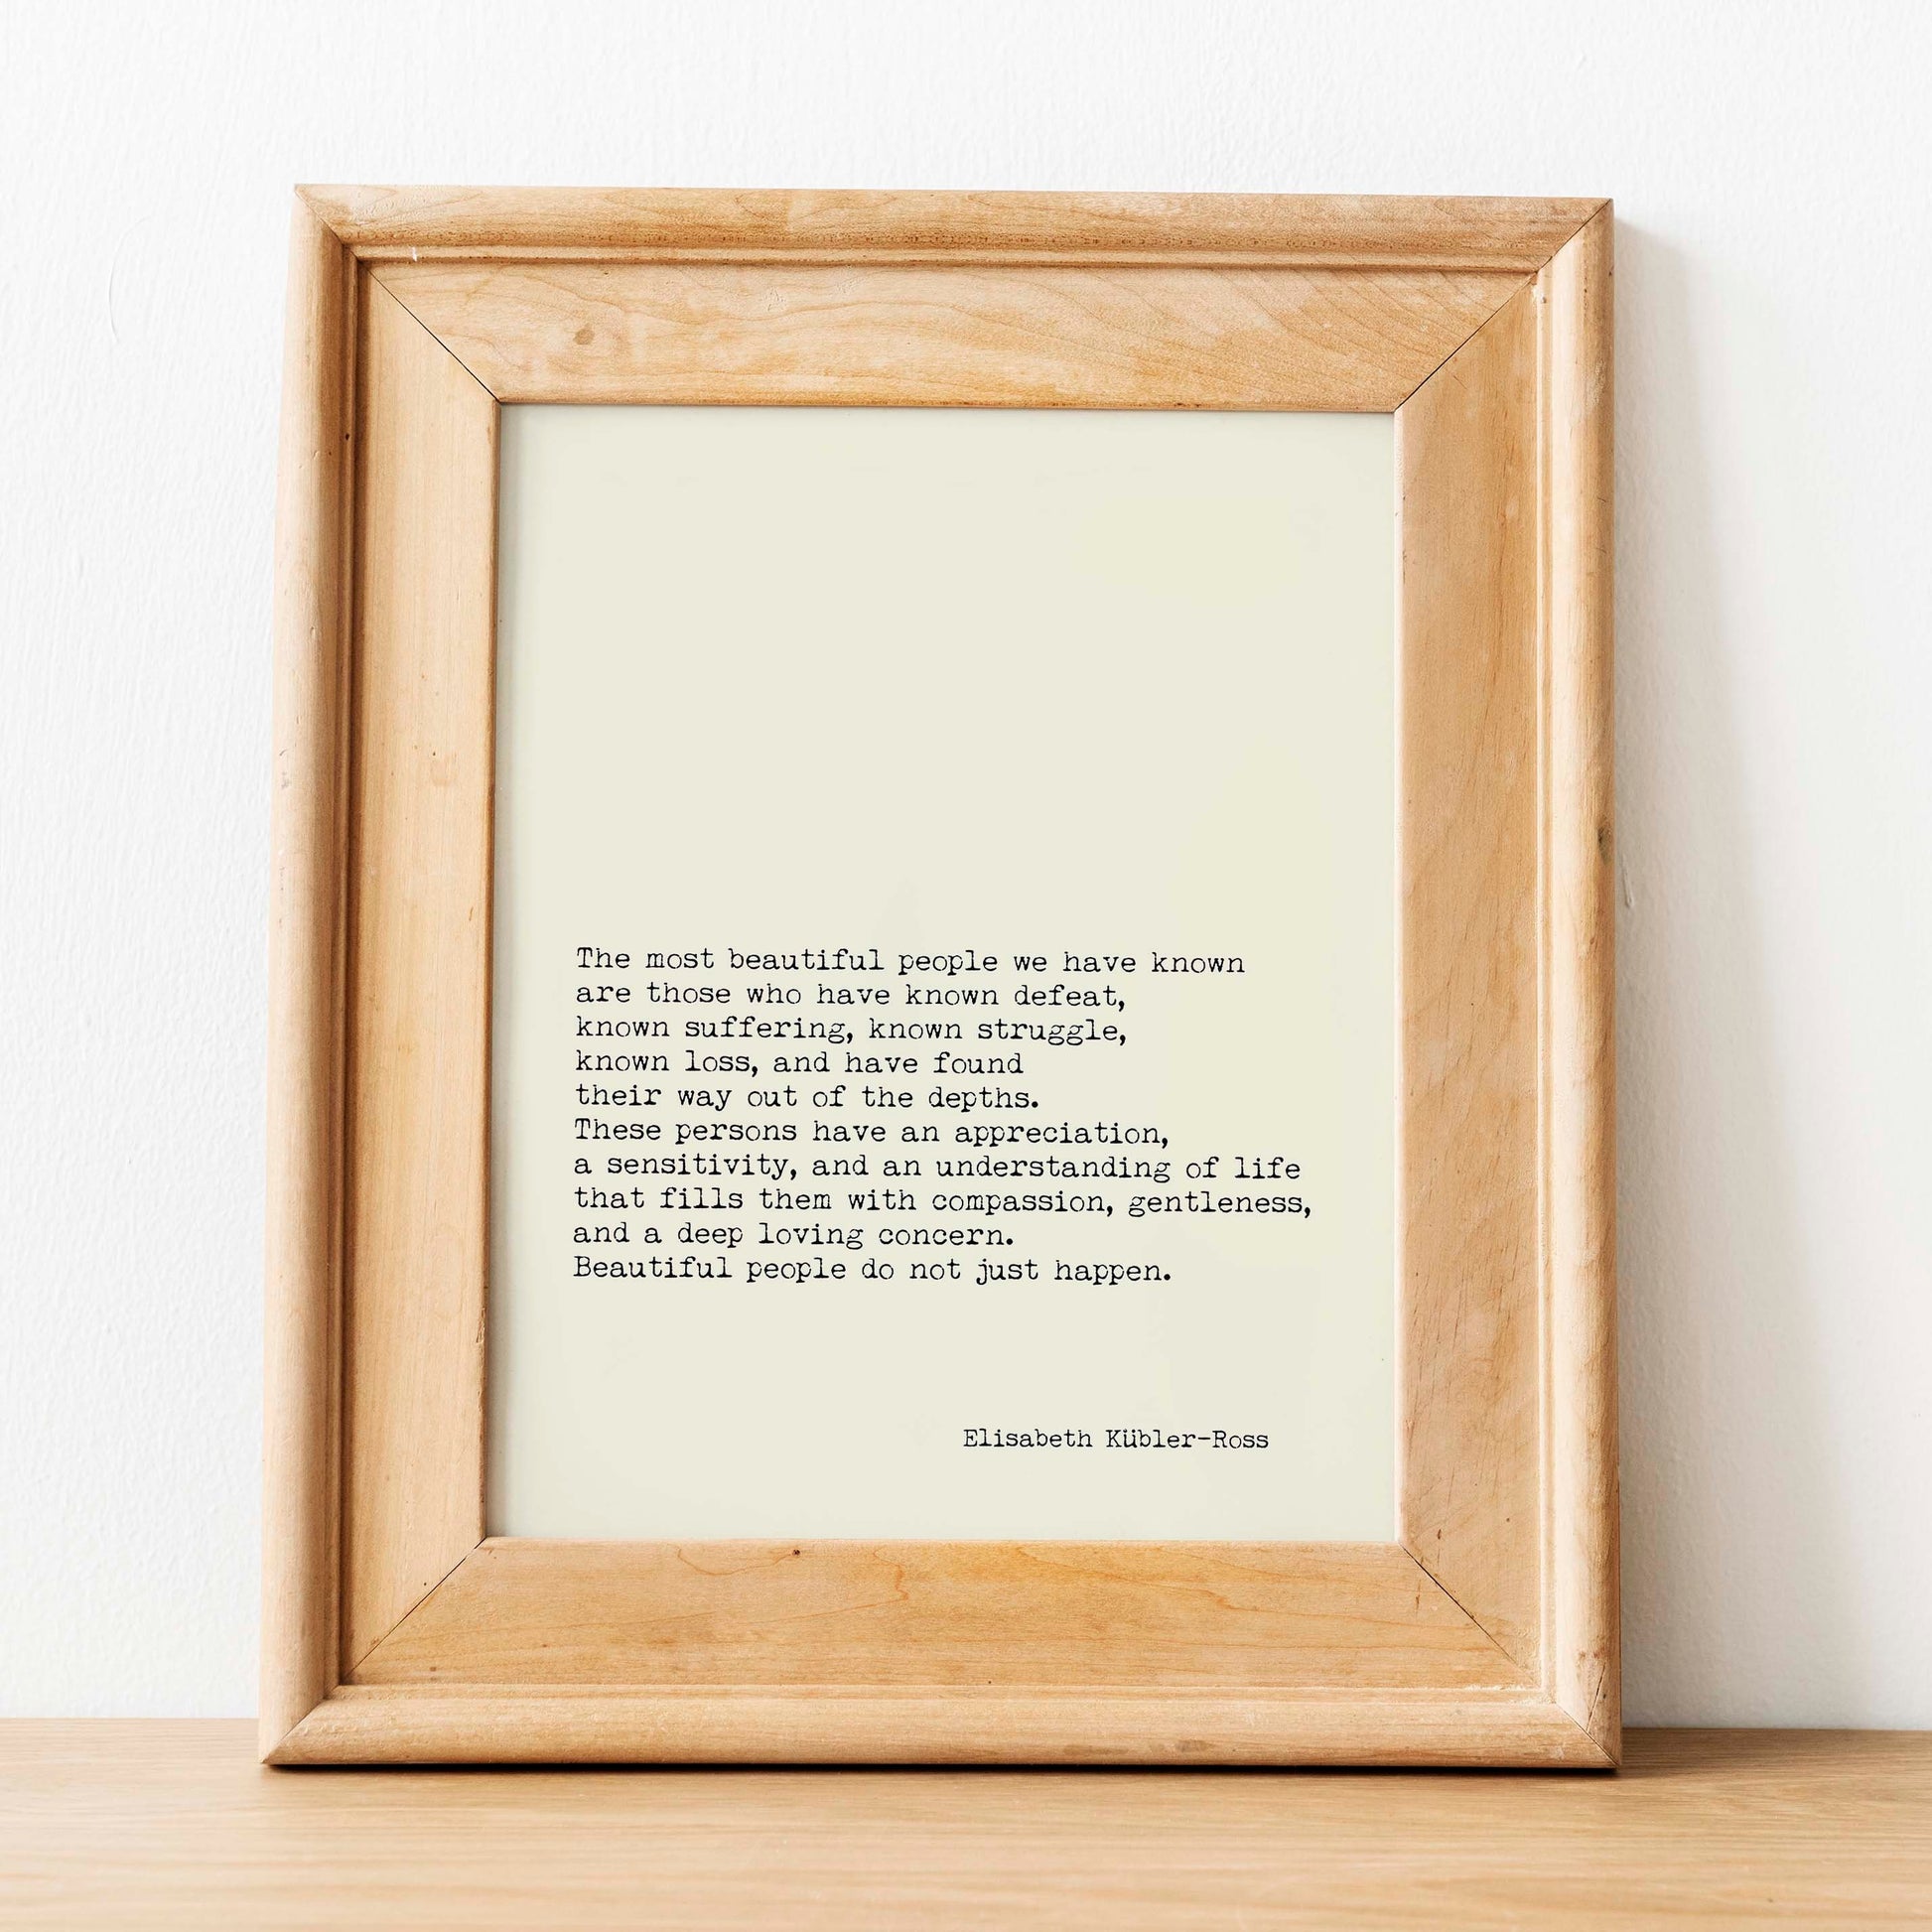 The most beautiful people we have known
are those who have known defeat,
known suffering, known struggle,
known loss, and have found
their way out of the depths.
These persons have an appreciation,
a sensitivity, and an understanding of life
that fills them with compassion, gentleness,
and a deep loving concern.
Beautiful people do not just happen.
Elisabeth Kübler-Ross